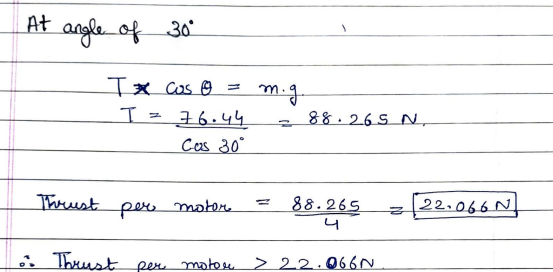 At angle of 30°
T × cos θ = m.g.
T = 76.44 / Cos 30° = 88.265 N.
Thrust per motor = 88.265 / 4 = 22.066 N
∴ Thrust per motor > 22.066N